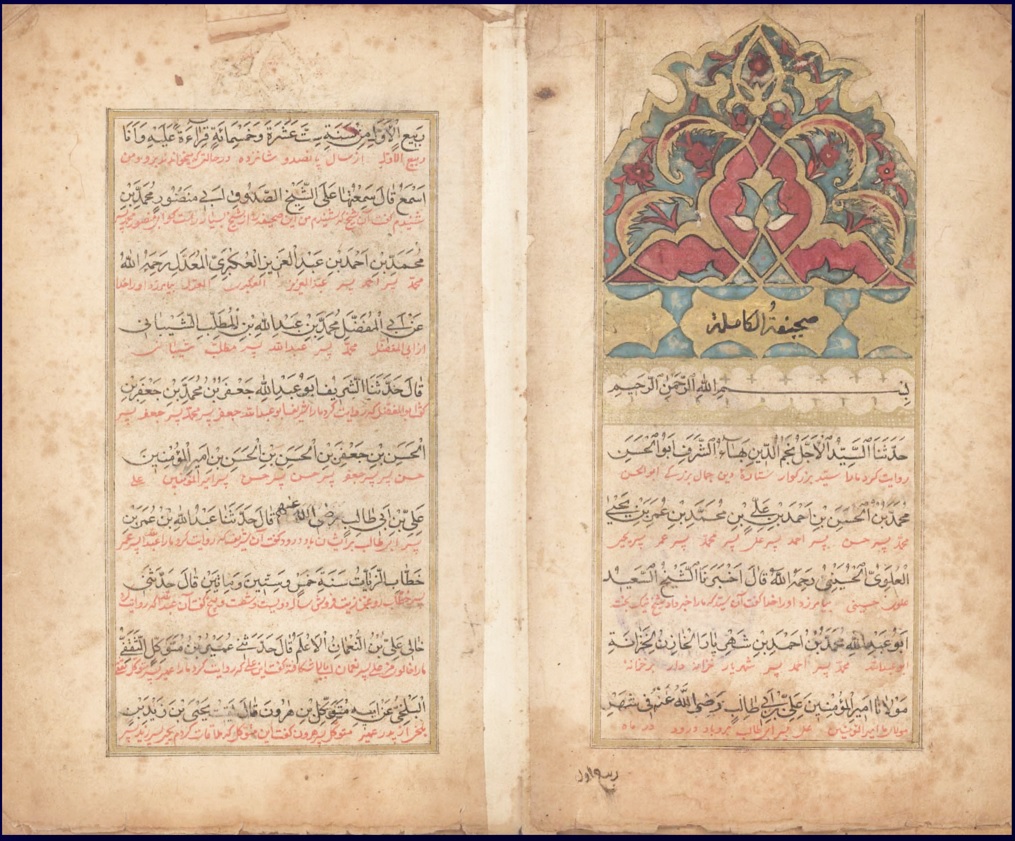 صحیفة الكاملة
بِسْمِ اللهِ الرَّحْمٰنِ الرَّحِيْمِ
حَدَّثَنَا السَّيِّدُ الْاَجَلُّ نَجْمُ الدِّيْنِ بَهَاءُ الشَّرَفِ اَبُو الْحَسَنِ
روایت کرد ما را سید بزرگوار ستاره دین جمال بزرگی ابوالحسن
مُحَمَّدُ بْنُ الْحَسَنِ بْنِ اَحْمَدَ بْنِ عَلِيِّ بْنِ مُحَمَّدِ بْنِ عُمَرَ بْنِ يَحْيَى
محمد پسر حسن پسر احمد پسر علی پسر محمد پسر عمر پسر یحیی
الْعَلَوِيُّ الْحُسَيْنِيُّ رَحِمَهُ اللهُ قَالَ اَخْبَرَنَا الشَّيْخُ السَّعِيْدُ
علوی حسینی بیامرزد او را خدا گفت آن سید که ما را خبر داد شیخ نیک بخت
اَبُو عَبْدِ اللهِ مُحَمَّدُ بْنُ اَحْمَدَ بْنِ شَهْرِيَارَ الْخَازِنُ لِخِزَانَةِ
ابو عبدالله محمد پسر احمد پسر شهریار خزانه دار برخزانه
مَوْلَانَا اَمِيْرِ الْمُؤْمِنِيْنَ عَلِيِّ بْنِ اَبِيْ طَالِبٍ رَضِيَ اللهُ عَنْهُ فِيْ شَهْرِ
مولانا امیر المؤمنین علی پسر ابی طالب درود در ماه
ربیع اول
رَبِيْعِ الْاَوَّلِ مِنْ سَنَةِ سِتَّ عَشَرَةَ وَخَمْسَمِائَةٍ قِرَاءَةً عَلَيْهِ وَاَنَا
ربیع الاول از سال پانصد و شانزده در حالتی که میخواند بر و ومن
اَسْمَعُ قَالَ سَمِعْتُهَا عَلَى الشَّيْخِ الصَّدُوْقِ اَبِيْ مَنْصُوْرٍ مُحَمَّدِ بْنِ
مُحَمَّدِ بْنِ اَحْمَدَ بْنِ عَبْدِ الْعَزِيْزِ الْعُكْبَرِيِّ الْمُعَدَّلِ رَحِمَهُ اللهُ
محمد پسر احمد پسر عبدالعزیز العکبری المعدل بیامرزد او را خدا
عَنْ اَبِي الْمُفَضَّلِ مُحَمَّدِ بْنِ عَبْدِ اللهِ بْنِ الْمُطَّلِبِ الشَّيْبَانِي
از ابی المفضل محمد پسر عبدالله پسر مطلب شیبانی
قَالَ حَدَّثَنَا الشَّرِيْفُ اَبُوْ عَبْدِ اللهِ جَعْفَرُ بْنُ مُحَمَّدِ بْنِ جَعْفَرِ بْنِ
گفت ابوالمفضل که روایت کرد ما را شریف ابو عبدالله جعفر پسر محمد پسر جعفر پسر
الْحَسَنِ بْنِ جَعْفَرِ بْنِ الْحَسَنِ بْنِ الْحَسَنِ بْنِ اَمِيْرِ الْمُؤْمِنِيْنَ
حسن پسر جعفر پسر حسن پسر حسن پسر امیر المؤمنین علی
عَلِيِّ بْنِ اَبِيْ طَالِبٍ رَضِيَ اللهُ عَنْهُمْ قَالَ حَدَّثَنَا عَبْدُ اللهِ بْنُ عُمَرَ بْنِ
خَطَّابٍ الزَّيَّاتُ سَنَةَ خَمْسٍ وَسِتِّيْنَ وَمِائَتَيْنِ قَالَ حَدَّثَنِيْ
خَالِيْ عَلِيُّ بْنُ النُّعْمَانِ الْاَعْلَمُ قَالَ حَدَّثَنِيْ عُمَيْرُ بْنُ مُتَوَكِّلٍ الثَّقَفِيُّ
الْبَلْخِيُّ عَنْ اَبِيْهِ مُتَوَكِّلِ بْنِ هٰرُوْنَ قَالَ لَقِيْتُ يَحْيَى بْنَ زَيْدِ بْنِ